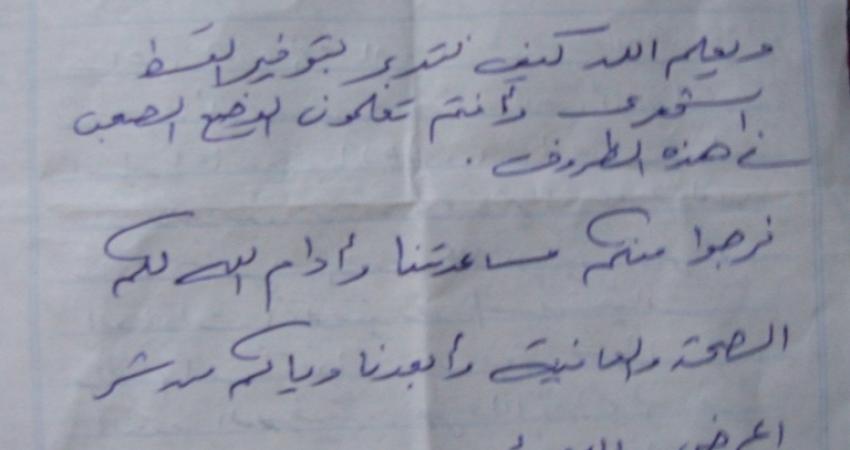 ويعلم الله كيف نتدبر بتوفير القسط
الشهري وأنتم تعلمون الوضع الصعب
في هذه الظروف .
نرجوا منكم مساعدتنا وأدام الله لكم
الصحة والعافية وأبعدنا وياكم من شر